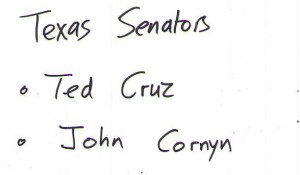 Texas Senators
• Ted Cruz
• John Cornyn